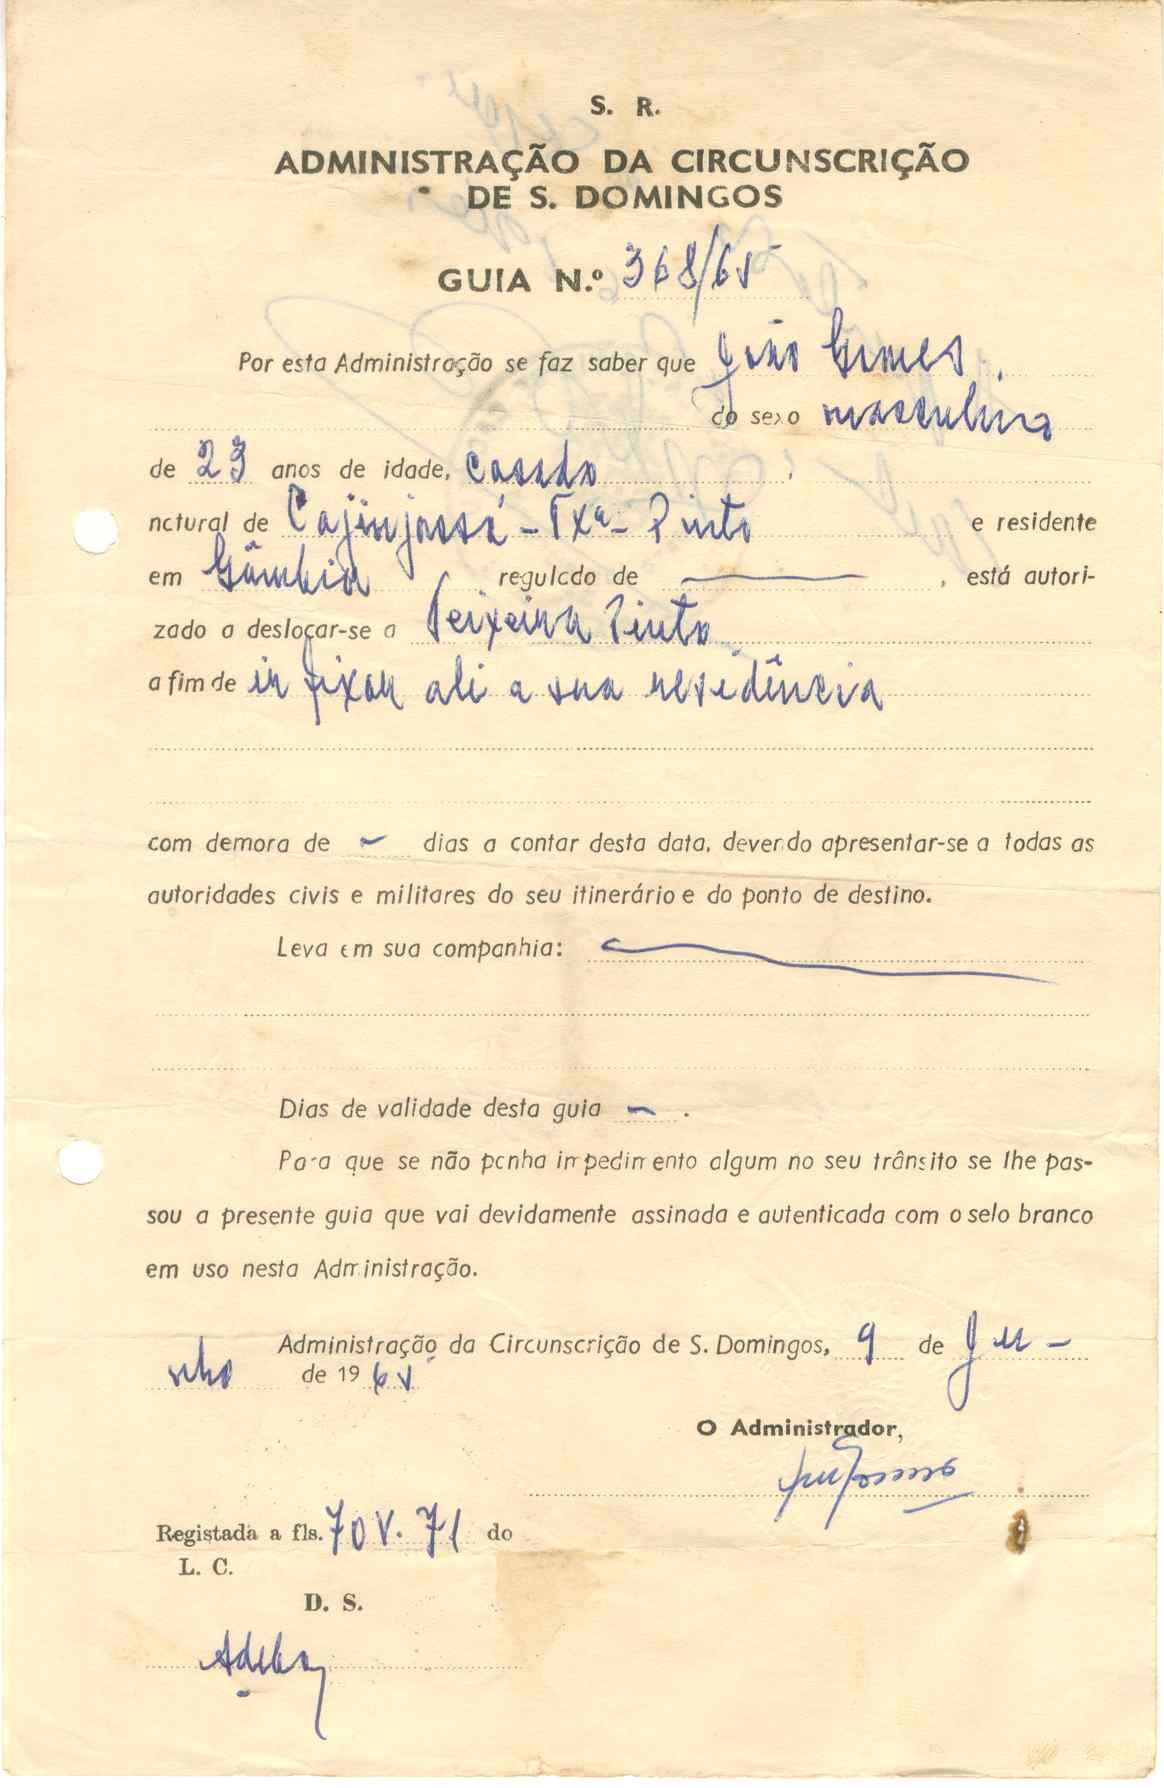 S. R.
ADMINISTRAÇÃO DA CIRCUNSCRIÇÃO
DE S. DOMINGOS
GUIA N.º 368/65
Por esta Administração se faz saber que João Gomes,
do sexo masculino
de 23 anos de idade, casado,
natural de Cajinjassá - Txª - Pinto e residente
em Gâmbia regulado de —, está autori-
zado a deslocar-se a Teixeira Pinto
a fim de ir fixar ali a sua residência
com demora de - dias a contar desta data, devendo apresentar-se a todas as
autoridades civis e militares do seu itinerário e do ponto de destino.
Leva em sua companhia: —
Dias de validade desta guia - .
Para que se não ponha impedimento algum no seu trânsito se lhe pas-
sou a presente guia que vai devidamente assinada e autenticada com o selo branco
em uso nesta Administração.
Administração da Circunscrição de S. Domingos, 9 de Ju-
nho de 1965
O Administrador,
Registada a fls. 70 V. 71 do
L. C.
D. S.